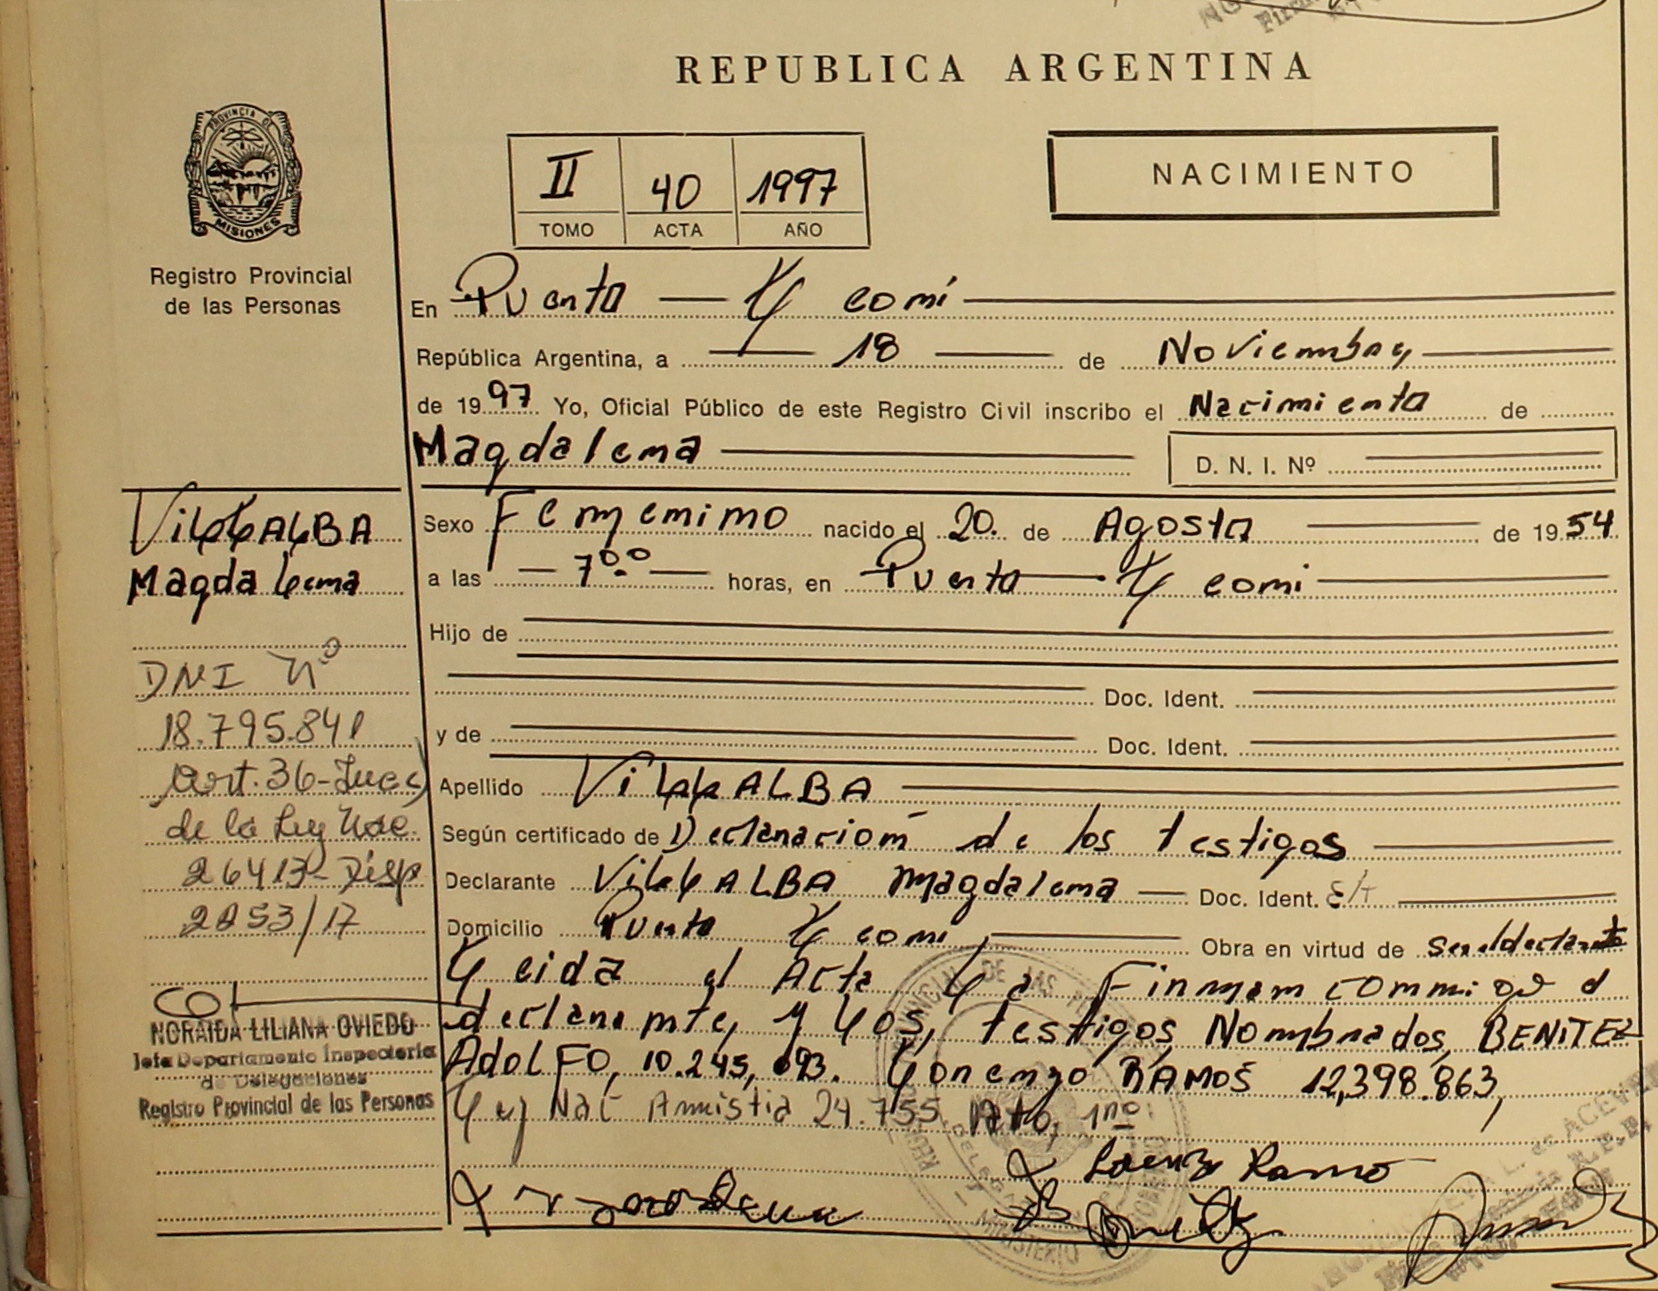 REPUBLICA ARGENTINA
PROVINCIA DE
MISIONES
Registro Provincial
de las Personas
II 40 1997
TOMO ACTA AÑO
NACIMIENTO
En Puerto Leoni
República Argentina, a 18 de Noviembre
de 1997 Yo, Oficial Público de este Registro Civil inscribo el Nacimiento de
Magdalena D. N. I. Nº
Sexo Femenino nacido el 20. de Agosto de 1954
a las 7 00 horas, en Puerto Leoni
Hijo de
Doc. Ident.
y de Doc. Ident.
Apellido VillALBA
Según certificado de Declaración de los testigos
Declarante VillALBA Magdalena Doc. Ident. S/T
Domicilio Puerto Leoni Obra en virtud de ser el declarante
Leida el Acta La Firman conmigo el
declarante, y los, testigos Nombrados, BENITEZ
AdolFO, 10.245,093. Lorenzo RAMOS 12,398.863,
Ley Nac Amnistia 24.755. Art, 1ro
Lorenzo Ramo
VillALBA
Magdalena
DNI Nº
18.795.841
Art. 36-Inc c)
de la Ley Nac.
26413-Disp
2853/17
NORAIDA LILIANA OVIEDO
Jefa Departamento Inspectoria
de Delegaciones
Registro Provincial de las Personas